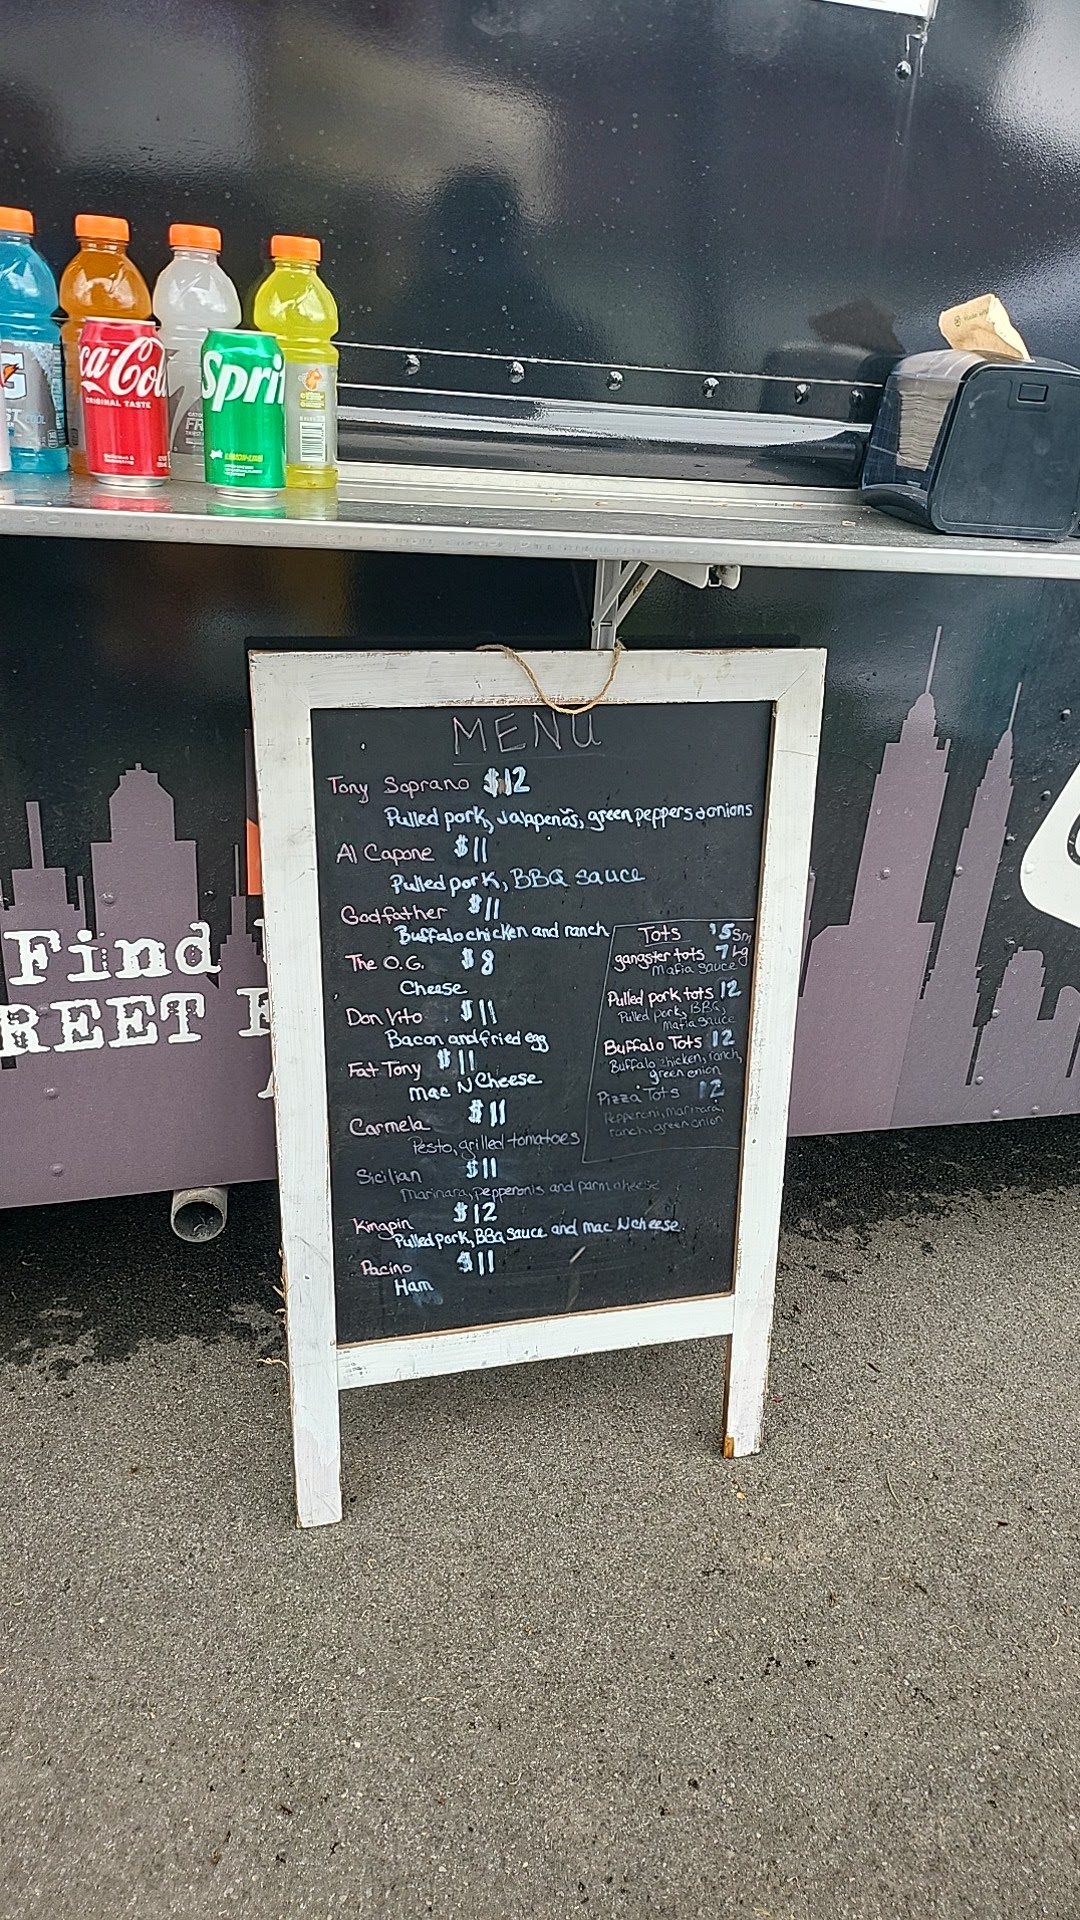 G
ca-Cola
ORIGINAL TASTE
Spri
LEMON-LIME
MENU
Tony Soprano $12
Pulled pork, Jalapeños, green peppers & onions
Al Capone $11
Pulled pork, BBQ sauce
Godfather $11
Buffalo chicken and ranch
The O.G. $8
Cheese
Don Vito $11
Bacon and fried egg
Fat Tony $11
Mac N Cheese
Carmela $11
Pesto, grilled tomatoes
Sicilian $11
Marinara, pepperonis and parm cheese
Kingpin $12
Pulled pork, BBQ sauce and mac N cheese
Pacino $11
Ham
Tots $5 Sm
gangster tots 7 Lg
Mafia sauce
Pulled pork tots 12
Pulled pork, BBQ,
Mafia sauce
Buffalo Tots 12
Buffalo chicken, ranch,
green onion
Pizza Tots 12
Pepperoni, marinara,
ranch, green onion
Find
REET